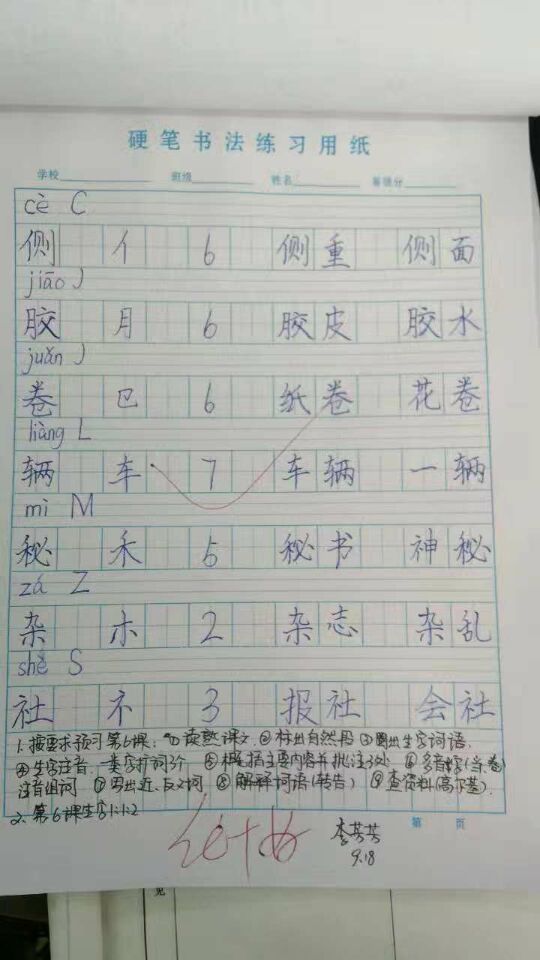 硬笔书法练习用纸
学校 班级 姓名 等级分
cè C
侧 亻 6 侧重 侧面
jiāo J
胶 月 6 胶皮 胶水
juǎn J
卷 㔾 6 纸卷 花卷
liàng L
辆 车 7 车辆 一辆
mì M
秘 禾 5 秘书 神秘
zá Z
杂 木 2 杂志 杂乱
shè S
社 礻 3 报社 会社
1、按要求预习第6课:①读熟课文 ②标出自然段 ③圈出生字词语
④生字注音,一类字扩词3个 ⑤概括主要内容并批注3处 ⑥多音字(当、卷)
注音组词 ⑦写出近、反义词 ⑧解释词语(转告) ⑨查资料(高尔基).
2、第6课生字1:1:2
第 页
李芳芳
9.18
见